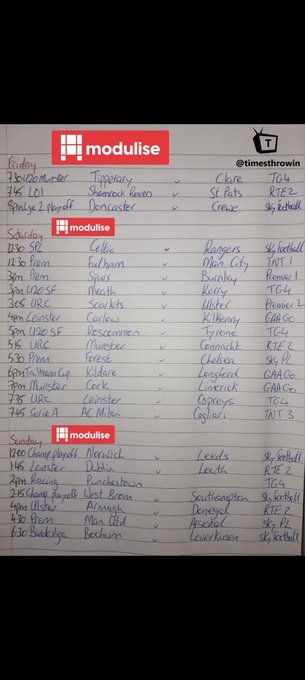 modulise
T
@timesthrowin
Friday
7 30 U20 Munster Tipperary v Clare TG4
7 45 LOI Shamrock Rovers v St. Pats RTE 2
8pm Lge 2 playoff Doncaster v Crewe Sky Football
modulise
Saturday
12 30 SPL Celtic v Rangers Sky Football
12 30 Prem Fulham v Man City TNT 1
3pm Prem Spurs v Burnley Premier 1
3pm U20 SF Meath v Kerry TG4
3.05 URC Scarlets v Ulster Premier 2
4pm Leinster Carlow v Kilkenny GAAGo
5pm U20 SF Roscommon v Tyrone TG4
5 15 URC Munster v Connacht RTE 2
5 30 Prem Forest v Chelsea Sky PL
6pm Tailteann Cup Kildare v Longford GAAGo
7pm Munster Cork v Limerick GAAGo
7 35 URC Leinster v Ospreys TG4
7 45 Serie A AC Milan v Cagliari TNT 3
modulise
Sunday
12 00 Champ playoff Norwich v Leeds Sky Football
1 45 Leinster Dublin v Louth RTE 2
2pm Racing Punchestown TG4
2 15 Champ playoff West Brom v Southampton Sky Football
4pm Ulster Armagh v Donegal RTE 2
4 30 Prem Man Utd v Arsenal Sky PL
6 30 Bundesliga Bochum v Leverkusen Sky Football